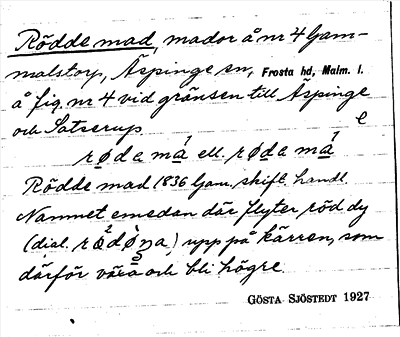 Rödde mad, mador å nr 4 Gam-
malstorp, Äspinge sn, Frosta hd, Malm. l.
å fig. nr 4 vid gränsen till Äspinge
och Satserup e
røda má ell. røda má
Rödde mad 1836 Gam. skift. handl.
Namnet emedan där flyter röd dy
(dial. upp på kärren, som
därför växa och bli högre.
GÖSTA SJÖSTEDT 1927